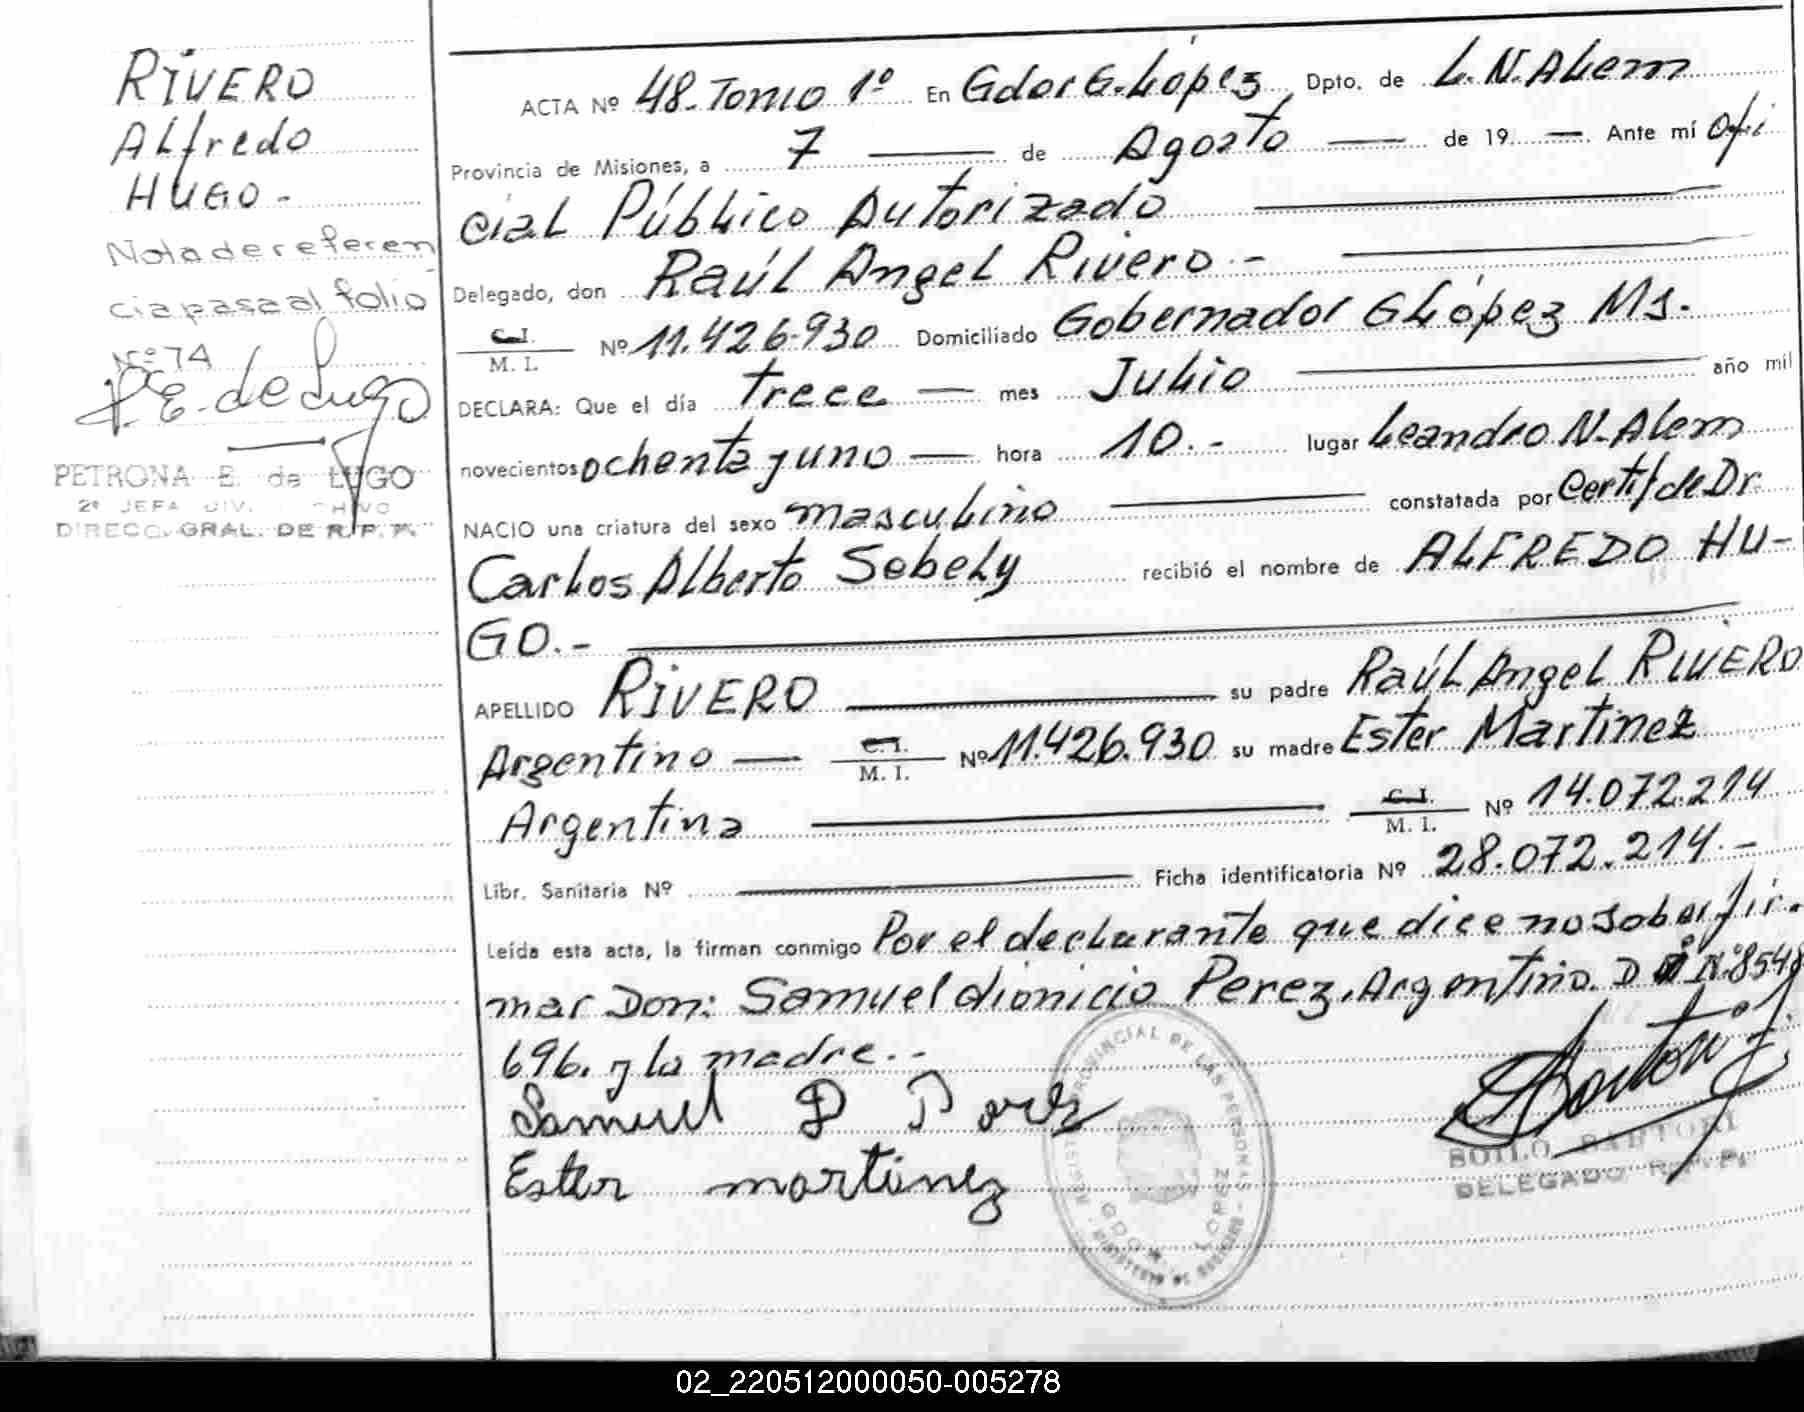 RIVERO
Alfredo
HUGO.-
Nota de referen
cia pasa al folio
Nº 74
P. E. de Lugo
PETRONA E. de LUGO
2ª JEFA DIV.
DIRECC. GRAL. DE R. P. P.
ACTA Nº 48. Tomo 1º En Gdor G. López Dpto. de L. N. Alem
Provincia de Misiones, a 7 de Agosto de 19 Ante mí Ofi
cial Público Autorizado
Delegado, don Raúl Angel Rivero.-
C. I.
M. I. Nº 11.426.930 Domiciliado Gobernador G López Ms.
DECLARA: Que el día trece mes Julio año mil
novecientos ochenta y uno hora 10.- lugar Leandro N. Alem
NACIO una criatura del sexo masculino constatada por Certif de Dr.
Carlos Alberto Sebely recibió el nombre de ALFREDO HU-
GO.-
APELLIDO RIVERO su padre Raúl Angel RIVERO
Argentino C. I. M. I. Nº 11.426.930 su madre Ester Martinez
Argentina C. I. M. I. Nº 14.072.214
Libr. Sanitaria Nº Ficha identificatoria Nº 28.072.214.-
Leída esta acta, la firman conmigo Por el declarante que dice no saber fir-
mar Don: Samuel dionicio Perez, Argentino. D Nº 8548
696. y la madre..
Samuel D Perez
Ester martinez
REGISTRO PROVINCIAL DE LAS PERSONAS
GDOR. LOPEZ
MINISTERIO DE GOBIERNO
BARTONI
DELEGADO R.P.P.
02_220512000050-005278